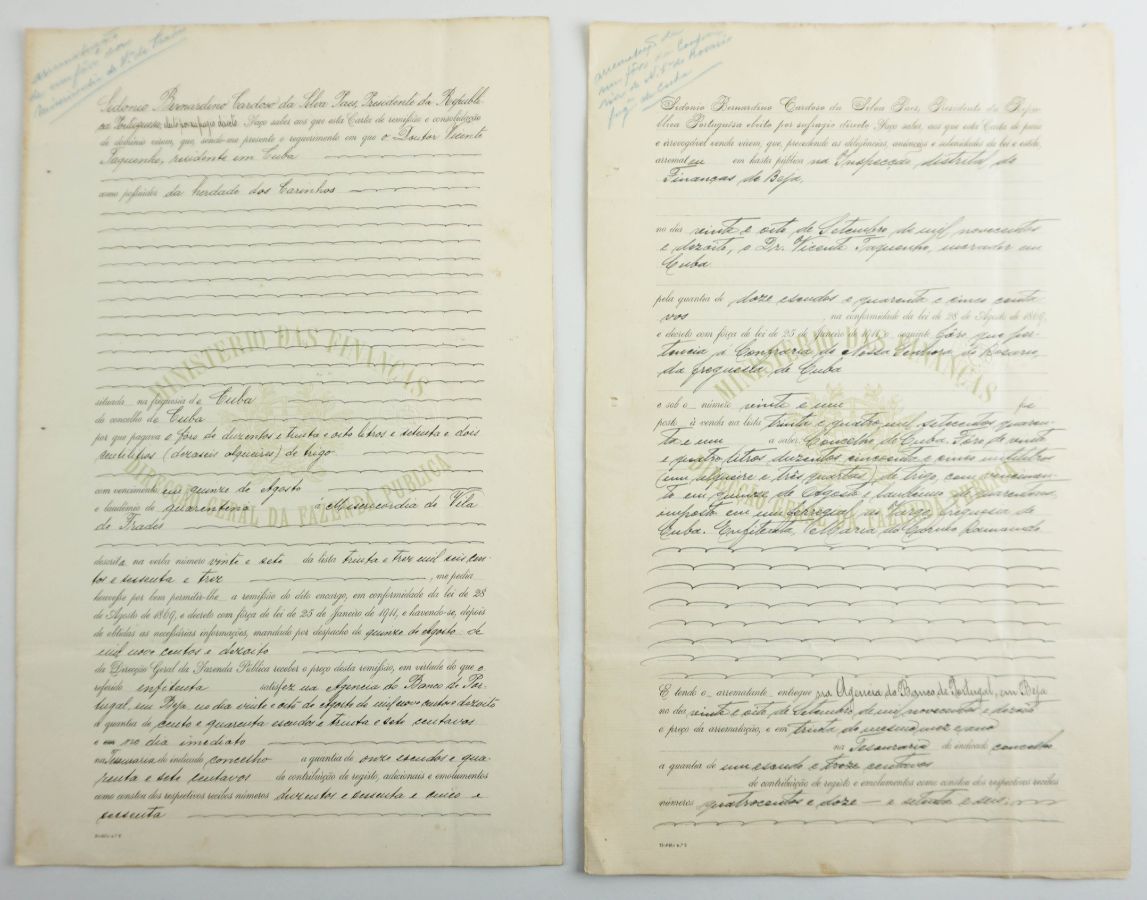 arrematação
de um fôro da
Misericordia de Vª de Frades
Sidonio Bernardino Cardoso da Silva Paes, Presidente da Republi-
ca Portuguesa, eleito por sufragio directo: Faço saber aos que esta Carta de remissão e consolidação
de domínio virem, que, sendo-me presente o requerimento em que o Doutor Vicente
Taquenho, residente em Cuba
como possuidor da herdade dos Carinhos
MINISTERIO DAS FINANÇAS
situada na freguesia de Cuba
do concelho de Cuba
por que pagava o fôro de duzentos e trinta e oito litros e setenta e dois
centilitros (dezaseis alqueires) de trigo
DIRECÇÃO GERAL DA FAZENDA PUBLICA
com vencimento em quinze de Agosto
e laudémio de quarentena á Misericordia de Vila
de Frades
descrita na verba número vinte e sete da lista trinta e trez mil seiscen-
tos e sessenta e trez, me pedia
houvesse por bem permitir-lhe a remissão do dito encargo, em conformidade da lei de 28
de Agosto de 1869, e decreto com fôrça de lei de 25 de Janeiro de 1911, e havendo-se, depois
de obtidas as necessárias informações, mandado por despacho de quinze de Agosto de
mil nove centos e dezoito
da Direcção Geral da Fazenda Pública receber o preço desta remissão, em virtude do que o
referido enfiteuta satisfez na Agencia do Banco de Por-
tugal, em Beja no dia vinte e oito de Agosto de mil nove centos e dezoito
a quantia de cento e quarenta escudos e trinta e sete centavos
e no dia imediato
na Tesouraria do indicado concelho a quantia de onze escudos e qua-
renta e sete centavos de contribuição de registo, adicionais e emolumentos
como constou dos respectivos recibos números duzentos e sessenta e cinco e
sessenta
arrematação de
um fôro da Confra
ria de N. Sª do Rosario
freg. de Cuba
Sidonio Bernardino Cardoso da Silva Paes, Presidente da Repu-
blica Portuguesa eleito por sufragio directo: Faço saber, aos que esta Carta de pura
e irrevogável venda virem, que, precedendo as diligências, anúncios e solenidades da lei e estilo,
arrematou em hasta pública na Inspecção distrital de
Finanças de Beja,
no dia vinte e oito de Setembro de mil novecentos
e dezoito, o Dr. Vicente Taquenho, morador em
Cuba
pela quantia de doze escudos e quarenta e cinco centa-
vos, na conformidade da lei de 28 de Agosto de 1869,
e decreto com fôrça de lei de 25 de Janeiro de 1911, o seguinte fôro que per-
tencia á Confraria de Nossa Senhora do Rosario,
da freguesia de Cuba
MINISTERIO DAS FINANÇAS
e sob o número vinte e um foi
posto à venda na lista trinta e quatro mil setecentos quaren-
ta e um a saber: Concelho de Cuba. Fôro de vinte
e quatro litros duzentos cincoenta e cinco mililitros
(um alqueire e três quartas) de trigo, com vencimen-
to em quinze de Agosto e laudemio de quarentena,
imposto em um ferregial, no Largo, freguesia de
Cuba. Enfiteuta, Maria do Carmo Ramando
DIRECÇÃO GERAL DA FAZENDA PUBLICA
E tendo o arrematante entregue na Agencia do Banco de Portugal, em Beja
no dia vinte e oito de Setembro de mil novecentos e dezoito
o preço da arrematação, e em trinta do mesmo mez e ano
na Tesouraria do indicado concelho
a quantia de um escudo e treze centavos
de contribuição de registo e emolumentos como constou dos respectivos recibos
números quatrocentos e doze e setenta e seis